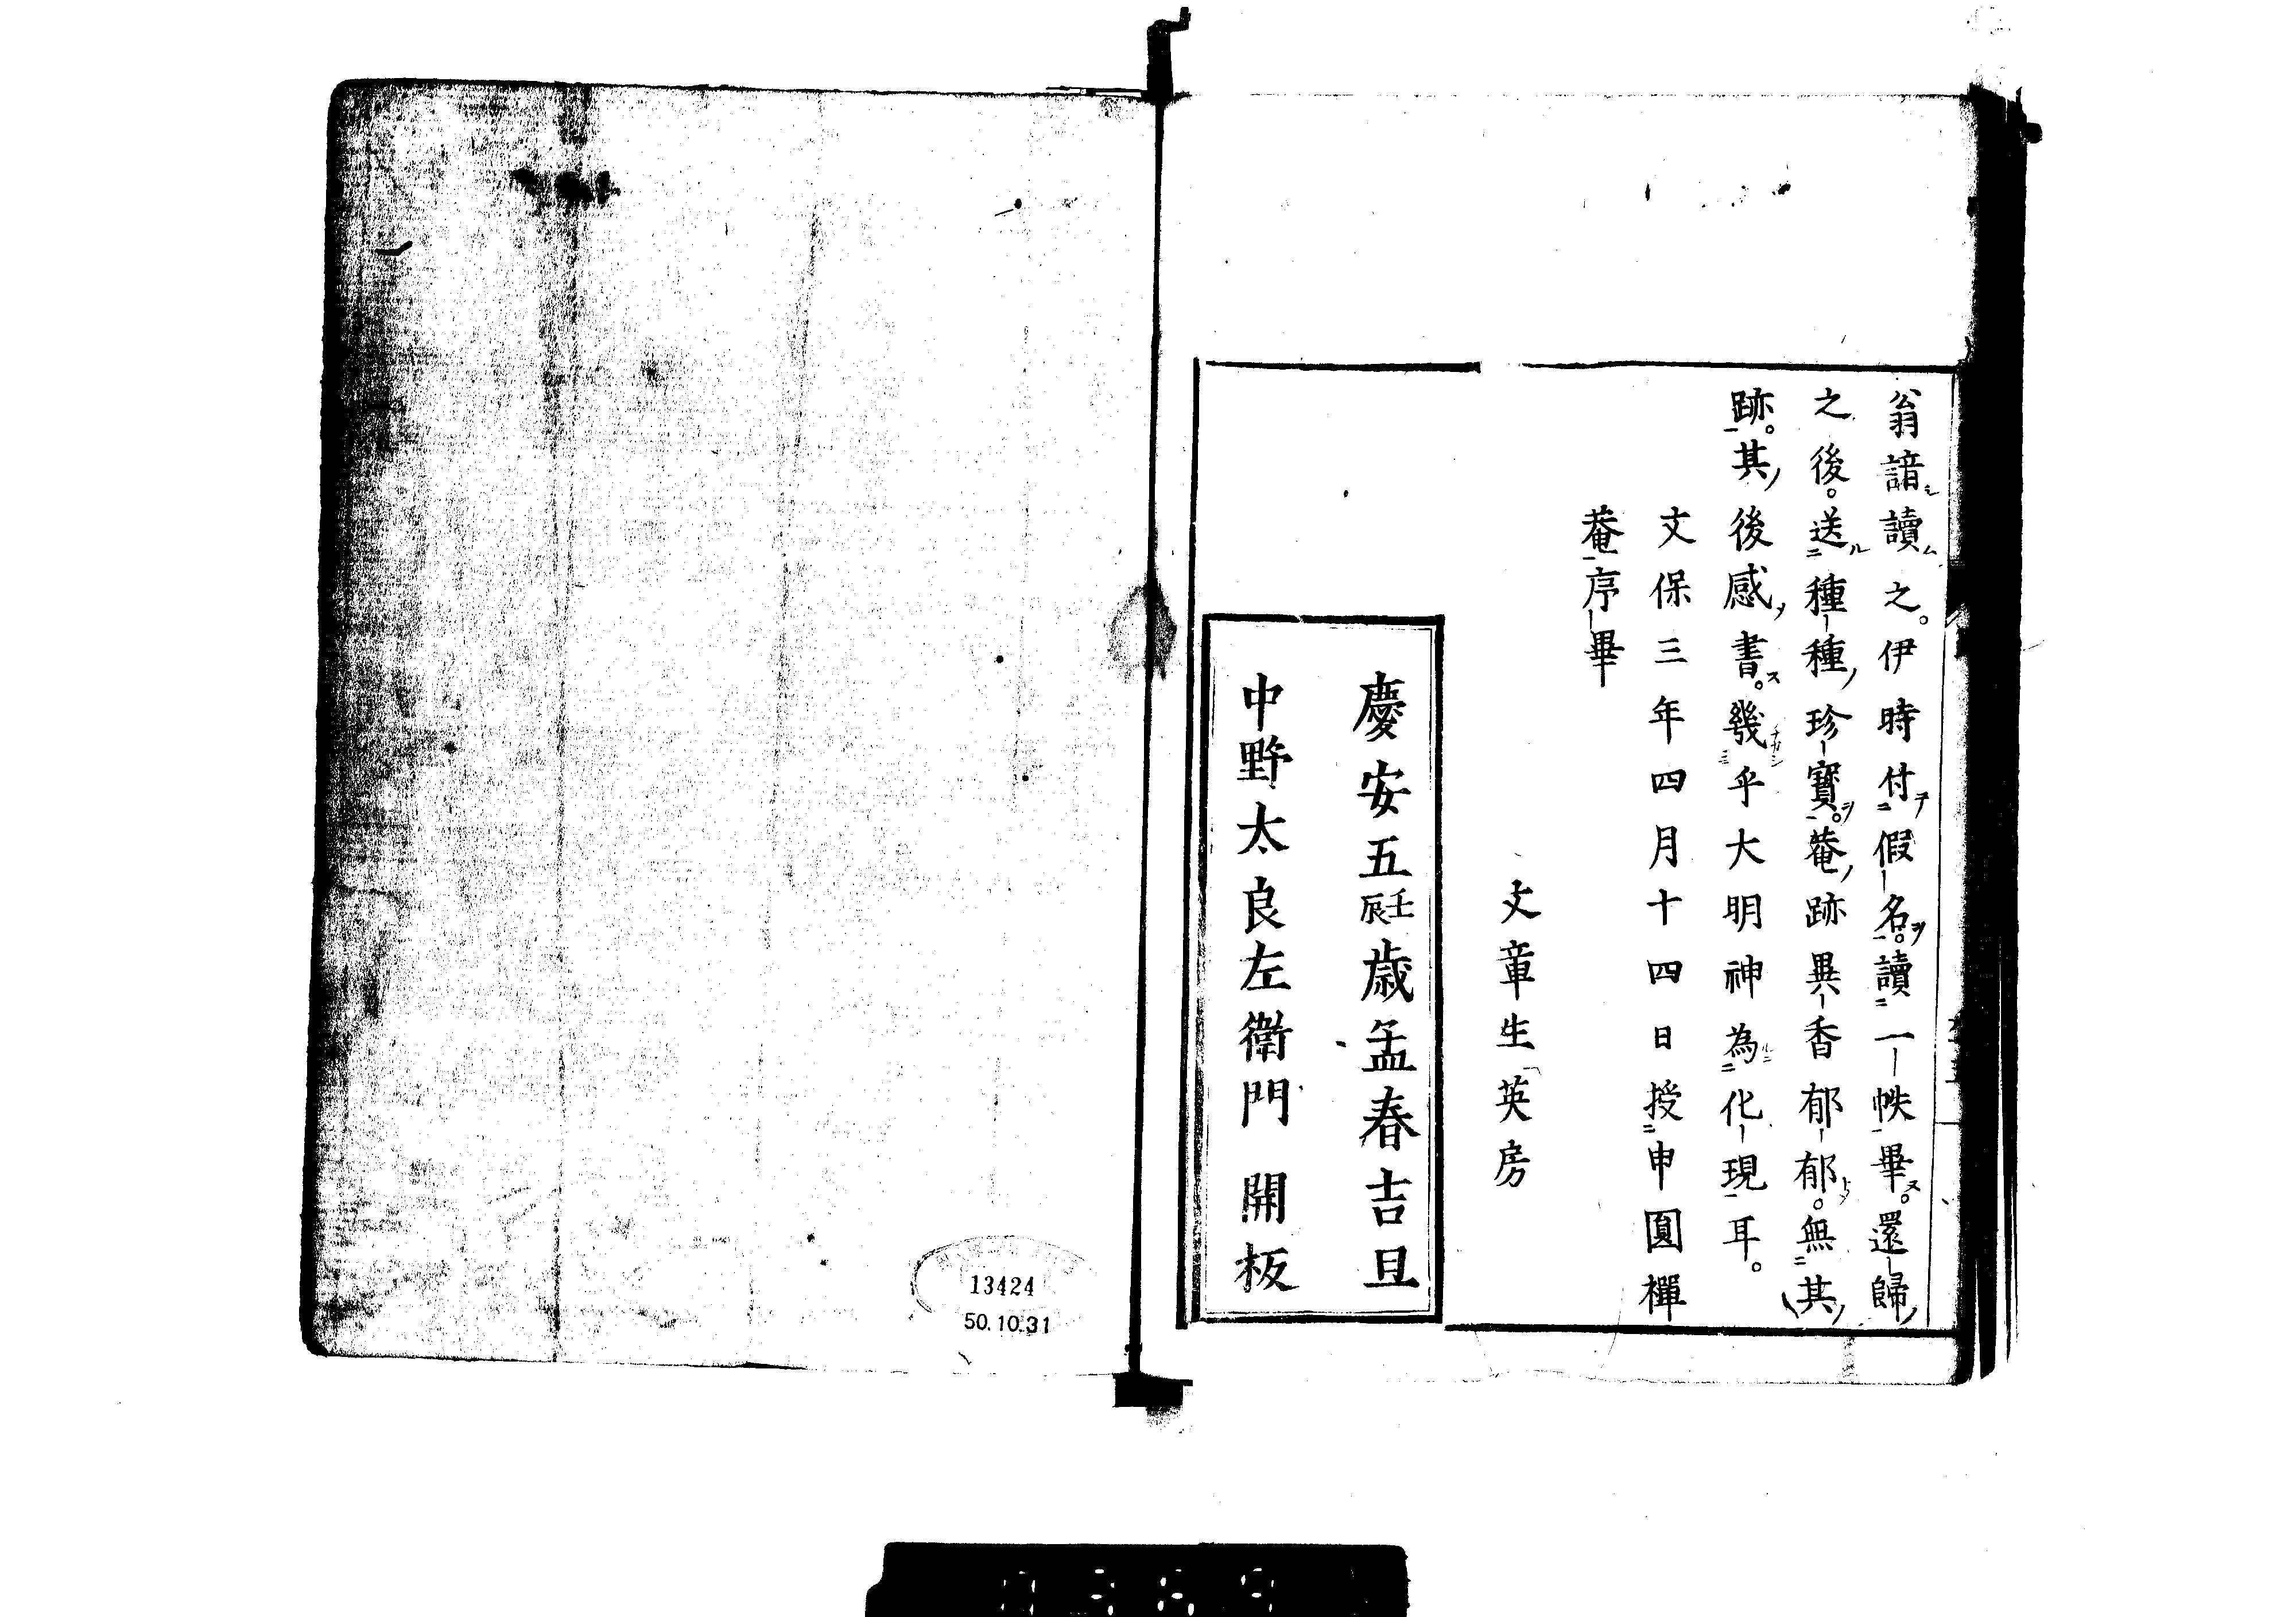 翁諳讀之。伊時付假名。讀一帙畢。還歸
之後。送種種珍寶。菴跡異香郁郁。無其
跡。其後感書。幾乎大明神為化現耳。
文保三年四月十四日授申圓禪
菴序畢
文章生英房
慶安五壬辰歳孟春吉旦
中野太良左衛門 開板
13424
50.10.31